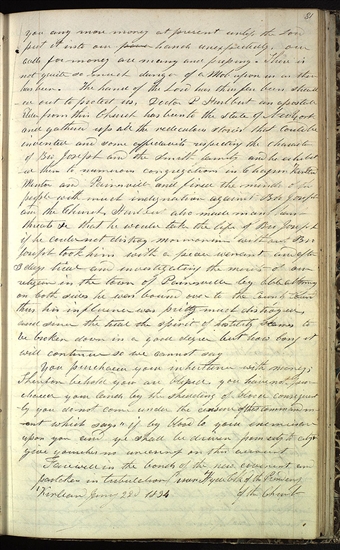 81
you any more money at present unless the Lord
put it into our hands unexpectedly, our
calls for money are many and pressing. There is
not quite so much danger of a Mob upon us as there
has been. The hand of the Lord has thus far been
out to protect us, Doctor P. Hurlbut an apostate
from this Church has been to the state of New York
and gathered up all the rediculous stories that could be
invented and some affidavits respecting the character
of Bro Joseph and the Smith family and he exhibited
them to numerous congregations in Chagrin Kirtland
Mentor and Painsville and fired the minds of the
people with much indignation against Bro Joseph
and the Church. Hurlbut also made many
threats &c that he would take the life of Bro Joseph
if he could not distroy mormonism without. Bro
Joseph took him with a peace warrant and after
3 days trial and investigating the merits of our
religion in the town of Painsville by able Attorneys
on both sides he was bound over to the County Court
thus his influence was pretty much distroyed
and since the trial the spirit of hostility seems to
be broken down in a good degree but how long it
will continue so we cannot say
You purchased your inheritance with money;
Therefore behold you are blessed, you have not purchased
your lands by the shedding of blood consequently
you do not come under the censure of the commandment
which says "if by blood lo your enemies are
upon you and ye shall be driven from city to city"
give yourselves no uneasiness on this account
Farewell in the bonds of the new covenant and
partakers in tribulation
Kirtland 1834 of the Church